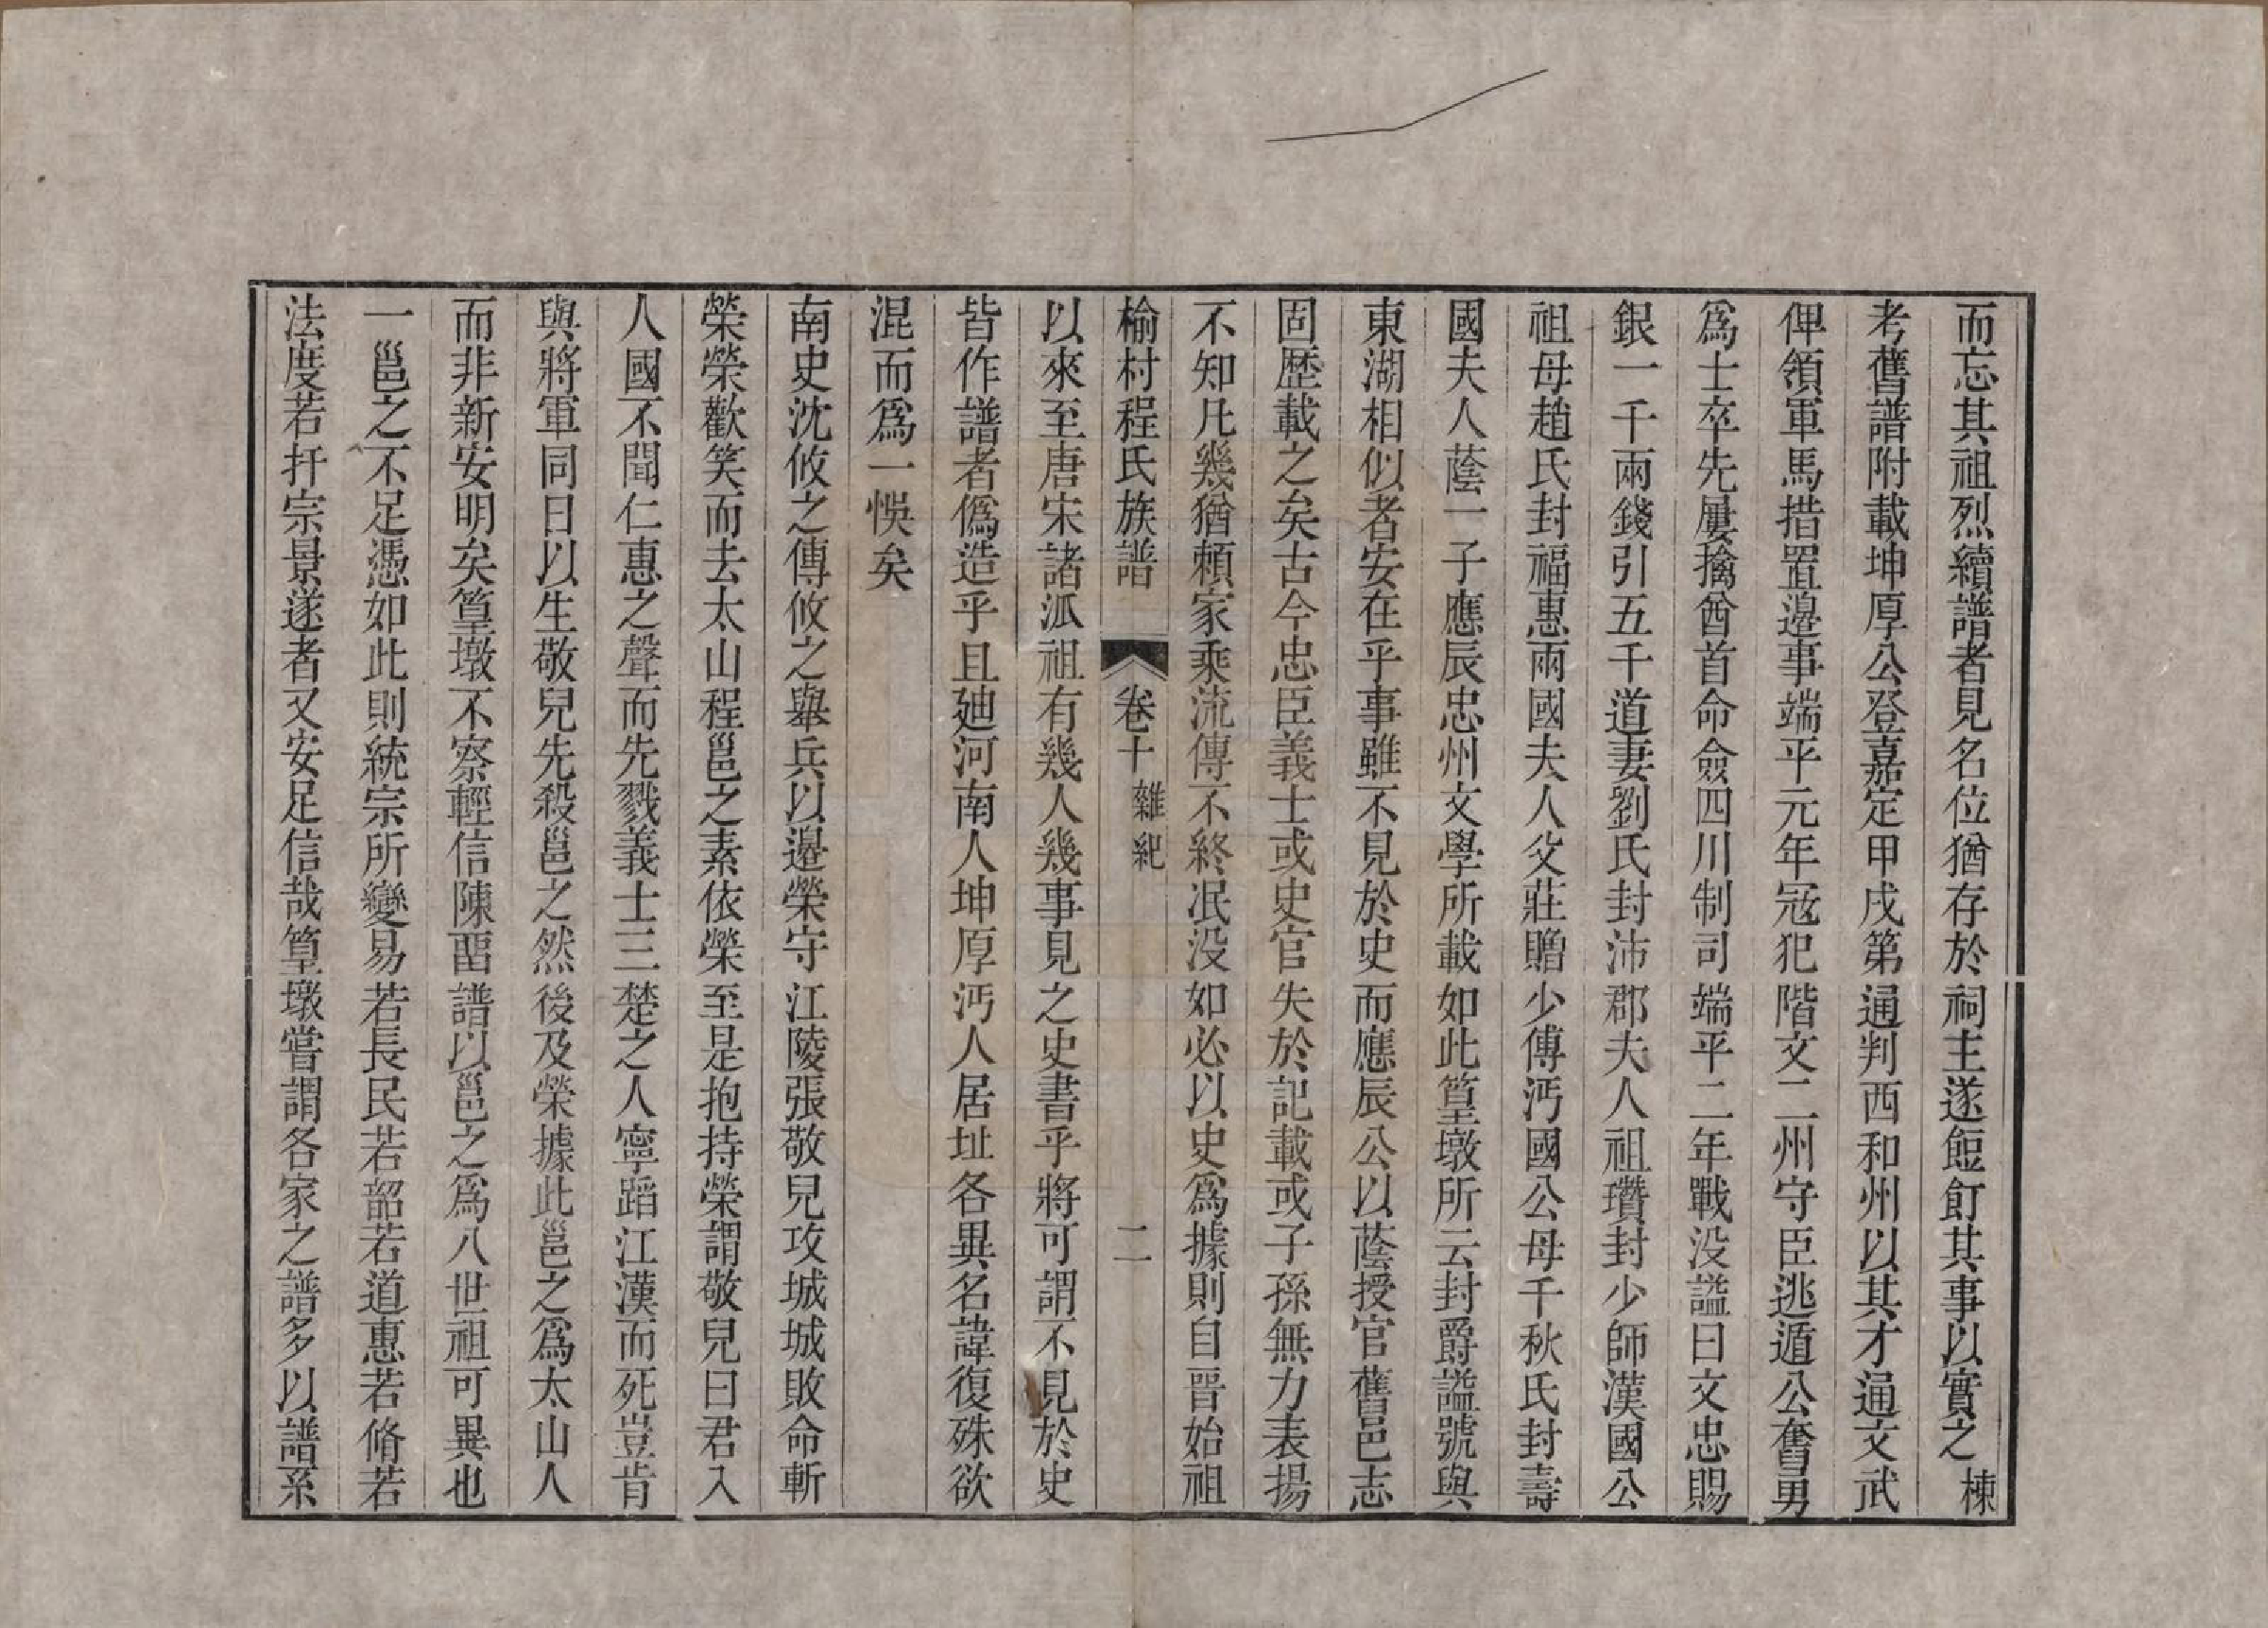 而忘其祖烈續譜者見名位猶存於祠主遂餖飣其事以實之棟
考舊譜附載坤厚公登嘉定甲戌第通判西和州以其才通文武
俾領軍馬措置邊事端平元年冦犯階文二州守臣逃遁公奮勇
爲士卒先屢擒酋首命僉四川制司端平二年戰没謚曰文忠賜
銀一千兩錢引五千道妻劉氏封沛郡夫人祖瓚封少師漢國公
祖母趙氏封福惠兩國夫人父莊贈少傅沔國公母千秋氏封壽
國夫人蔭一子應辰忠州文學所載如此篁墩所云封爵謚號與
東湖相似者安在乎事雖不見於史而應辰公以蔭授官舊邑志
固歷載之矣古今忠臣義士或史官失於記載或子孫無力表揚
不知凡幾猶賴家乘流傳不終冺没如必以史爲據則自晉始祖
榆村程氏族譜 卷十 雜紀 二
以來至唐宋諸派祖有幾人幾事見之史書乎將可謂不見於史
皆作譜者僞造乎且廸河南人坤厚沔人居址各異名諱復殊欲
混而爲一悞矣
南史沈攸之傳攸之舉兵以邊榮守江陵張敬兒攻城城敗命斬
榮榮歡笑而去太山程邕之素依榮至是抱持榮謂敬兒曰君入
人國不聞仁惠之聲而先戮義士三楚之人寧蹈江漢而死豈肯
與將軍同日以生敬兒先殺邕之然後及榮據此邕之爲太山人
而非新安明矣篁墩不察輕信陳留譜以邕之爲八世祖可異也
一邕之不足憑如此則統宗所變易若長民若韶若道惠若脩若
法度若扞宗景遂者又安足信哉篁墩嘗謂各家之譜多以譜系